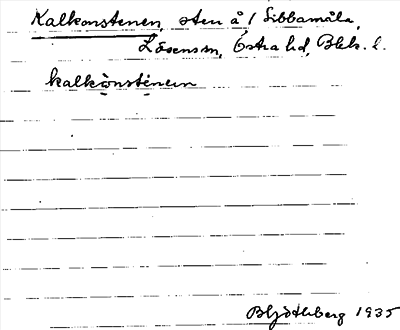 Kalkonstenen, sten å 1 Sibbamåla,
Lösens sn, Östra hd, Blek. l.
kalkònsténen
Blg Ethberg 1935